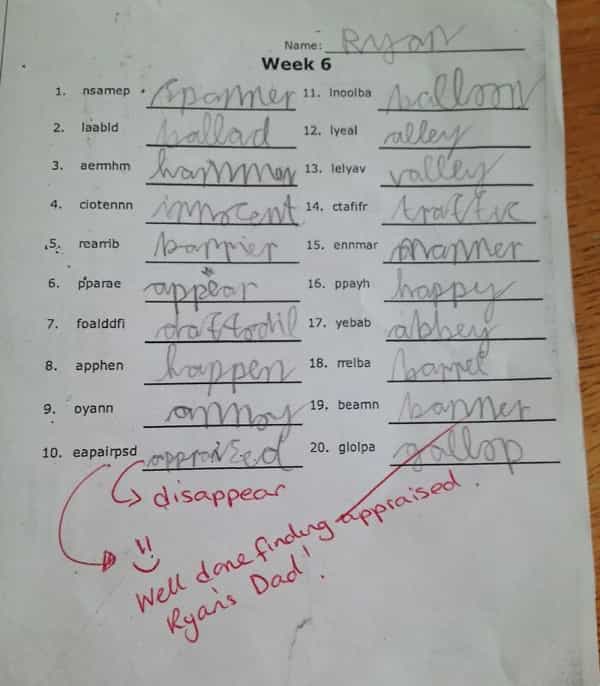 Name: Ryan
Week 6
1. nsamep spanner
2. laabld ballad
3. aermhm hammer
4. ciotennn innocent
5. rearrib barrier
6. pparae appear
7. foalddfi daffodil
8. apphen happen
9. oyann annoy
10. eapairpsd appraised
11. lnoolba balloon
12. lyeal alley
13. lelyav valley
14. ctafifr traffic
15. ennmar manner
16. ppayh happy
17. yebab abbey
18. rrelba barrel
19. beamn banner
20. glolpa gallop
disappear
!!
Well done finding appraised.
Ryan's Dad!